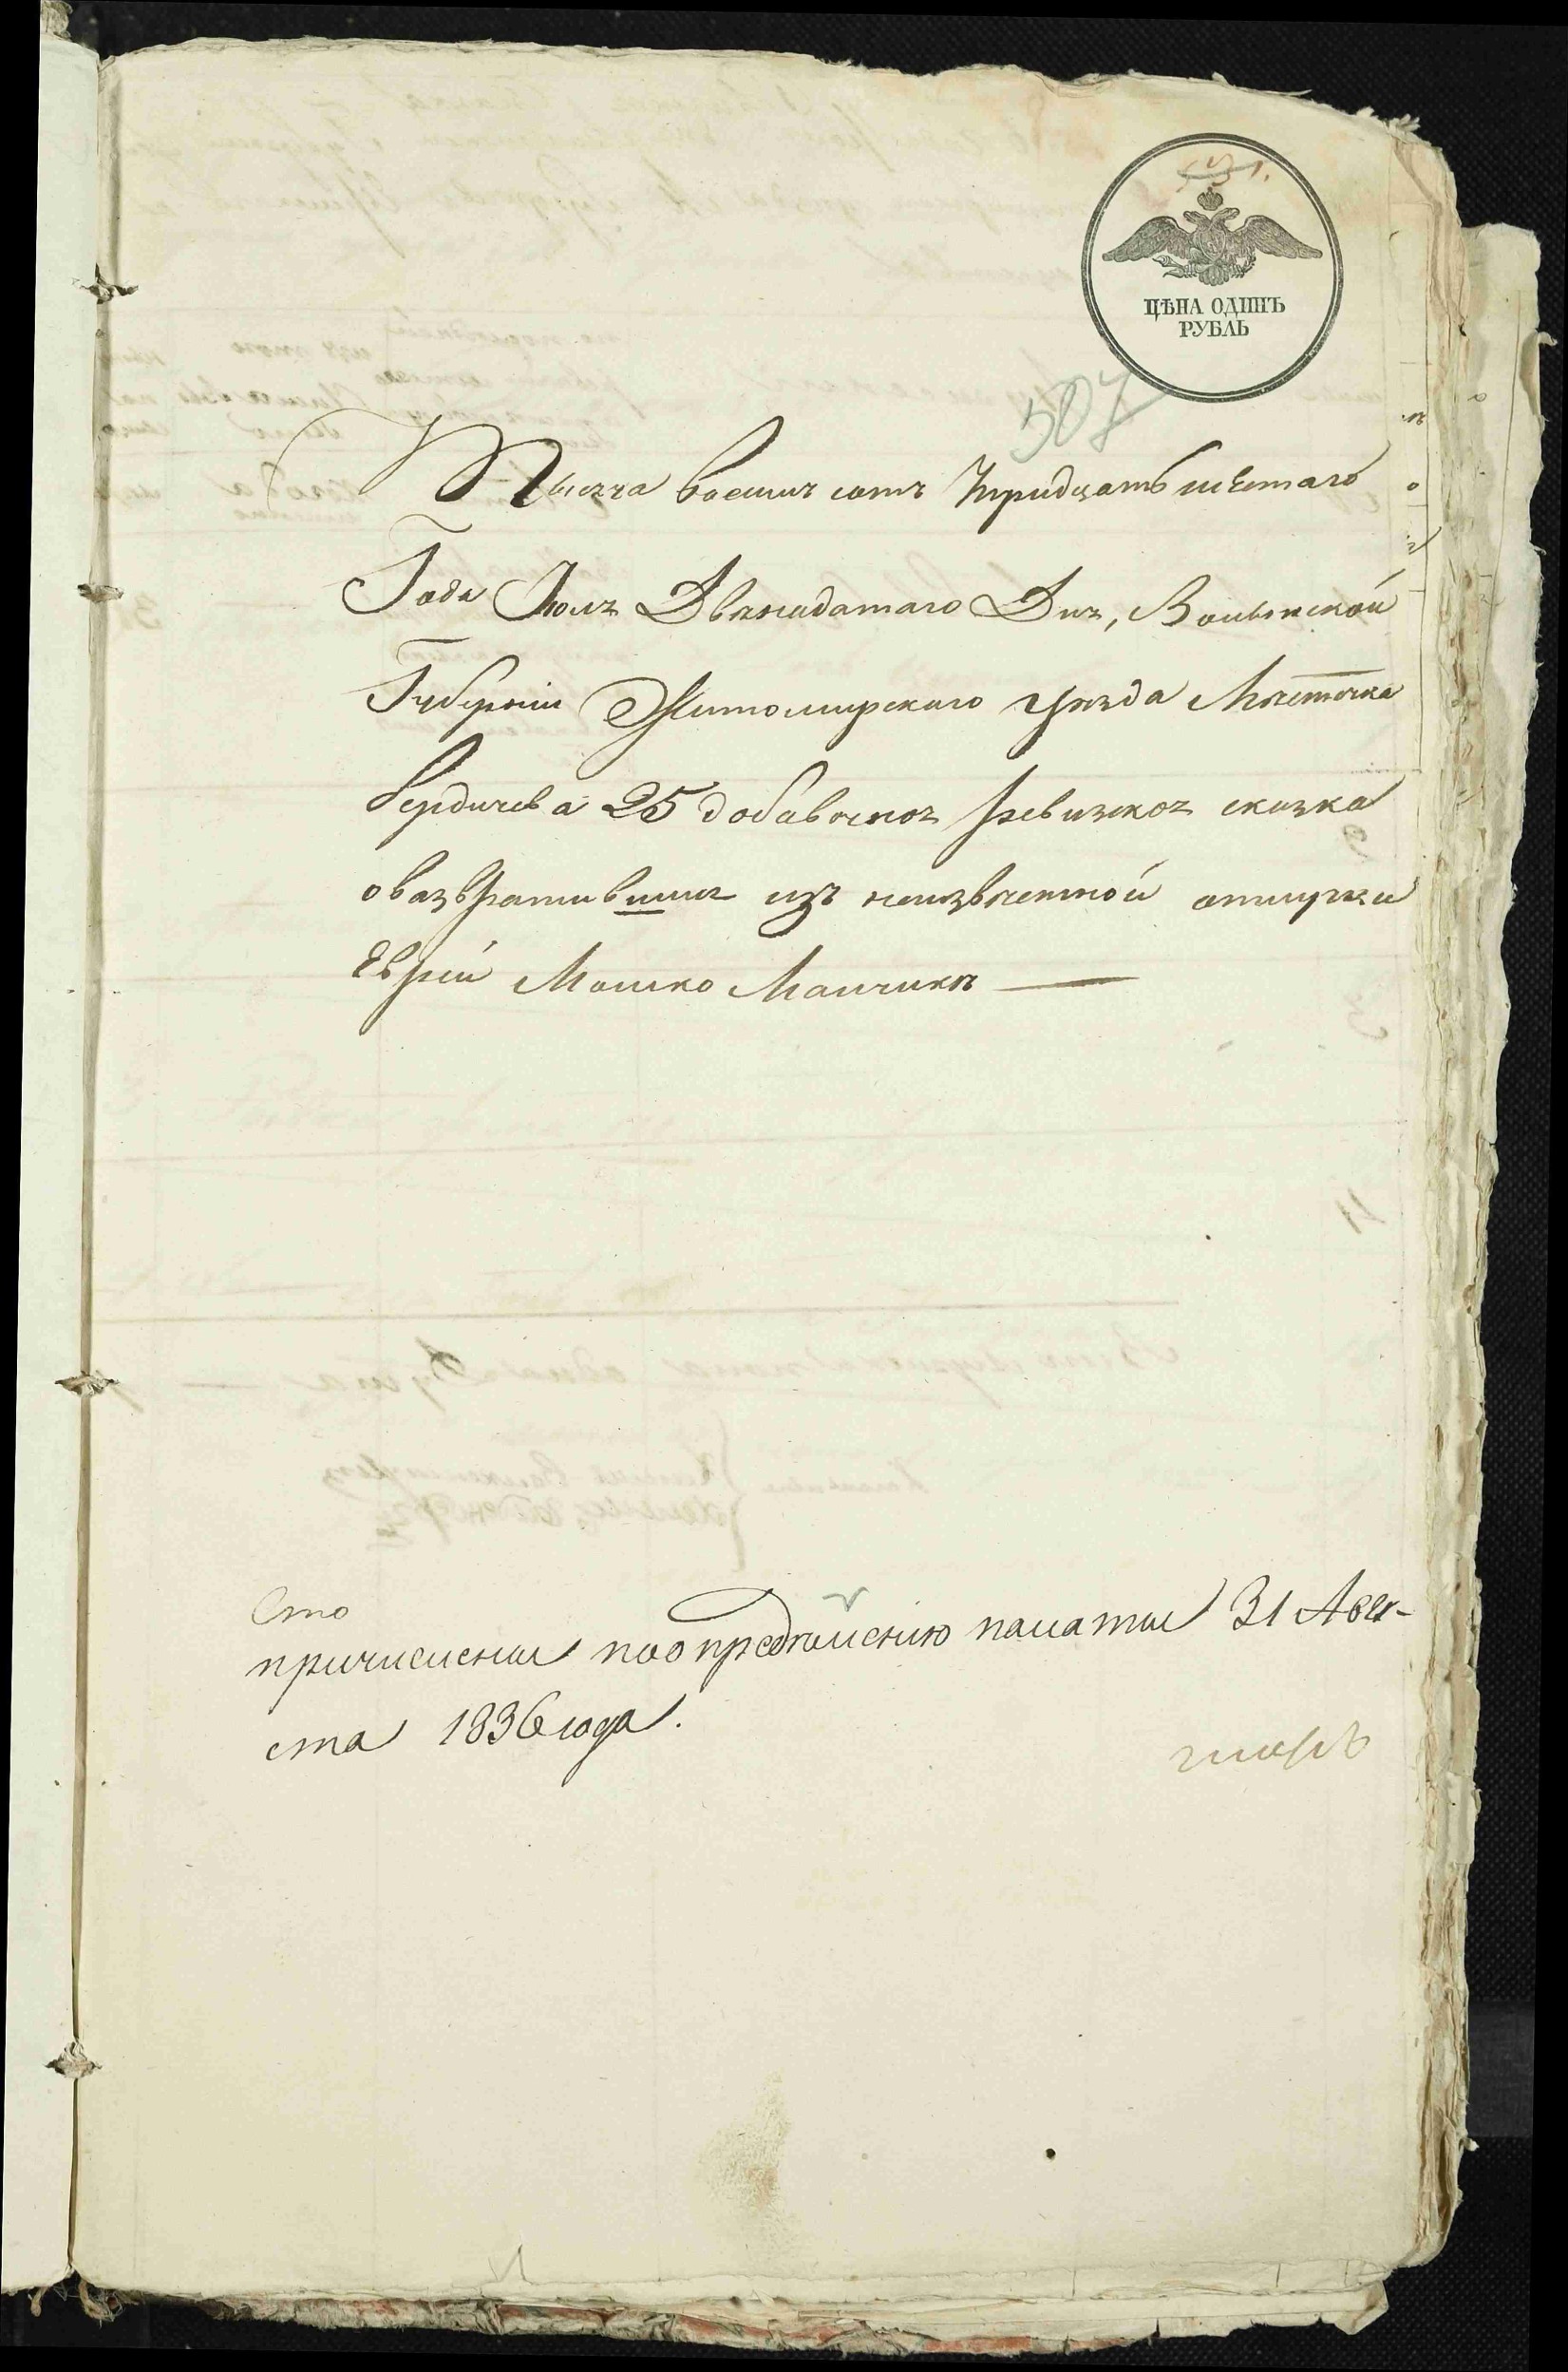 ЦѢНА ОДИНЪ
РУБЛЬ
507
Тысяча восемь сотъ тридцать шестаго
Года Июля Двенадатаго Дня, Волынской
Губернiи Житомирскаго уѣзда Мѣстечка
Бердичева 25 добавочная ревизкая сказка
овазвративших изъ неизвѣстной отлучки
Еврей Мошко
причислены по опредѣленiю палаты 31 Авгу-
ста 1836 года.